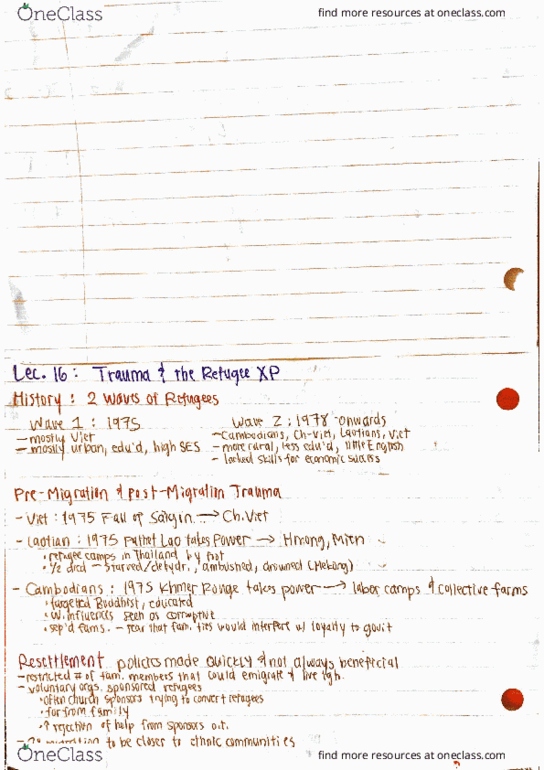 OneClass find more resources at oneclass.com
Lec. 16: Trauma & the Refugee XP
History: 2 Waves of Refugees
Wave 1: 1975
- mostly Viet
- mostly urban, edu'd, high SES
Wave 2: 1978 onwards
- Cambodians, Ch-Viet, Laotians, Viet
- more rural, less edu'd, little English
- lacked skills for economic success
Pre-Migration & Post-Migration Trauma
- Viet: 1975 Fall of Saigon → Ch.Viet
- Laotian: 1975 Pathet Lao takes Power → Hmong, Mien
• refugee camps in Thailand by foot
• 1/2 died - starved/dehydr., ambushed, drowned (Mekong)
- Cambodians: 1975 Khmer Rouge takes power → labor camps & collective farms
• targeted Buddhist, educated
• W. influences seen as corruptive
• sep'd fams. - fear that fam. ties would interfere w/ loyalty to gov't
Resettlement policies made quickly & not always beneficial
- restricted # of fam. members that could emigrate & live tgh.
- voluntary orgs. sponsored refugees
• often church sponsors trying to convert refugees
• far from family
• ↑ rejection of help from sponsors o.t.
to be closer to ethnic communities
OneClass find more resources at oneclass.com